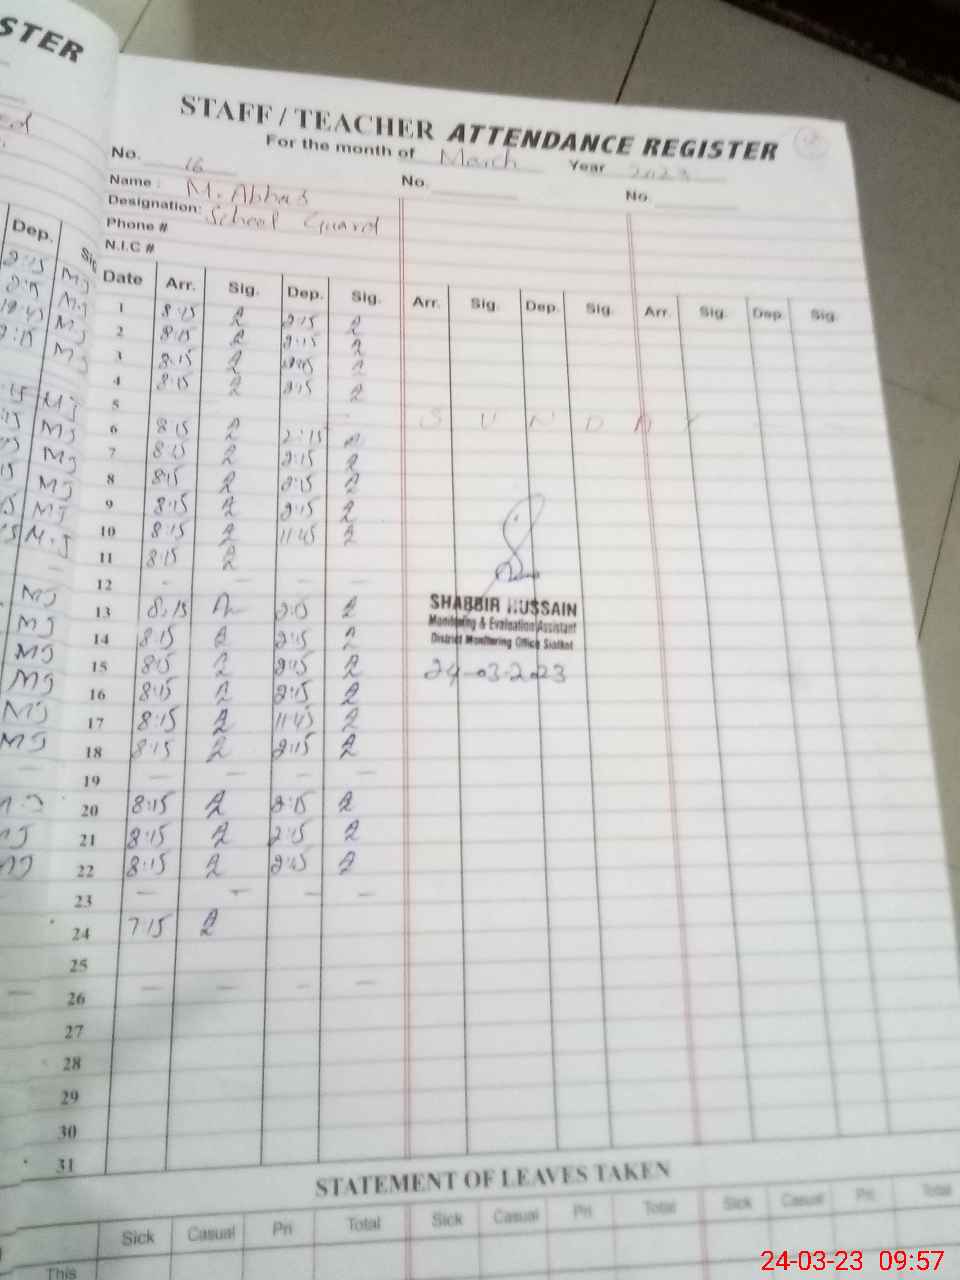 STER
STAFF / TEACHER ATTENDANCE REGISTER
For the month of March Year 2023
No. 16 No. No.
Name : M. Abbas
Designation: School Guard
Phone #
N.I.C #
Dep. Sig
Date Arr. Sig. Dep. Sig. Arr. Sig. Dep. Sig. Arr. Sig. Dep. Sig.
1 8:15 2:15
2 8:15 2:15
3 8:15
4 8:15 2:15
5 S U N D A Y
6 8:15 2:15
7 8:15 2:15
8 8:15 2:15
9 8:15 2:15
10 8:15 11:45
11 8:15
12 - - - -
13 8:15
14 8:15 2:15
15 8:15 2:15
16 8:15 2:15
17 8:15 11:45
18 8:15 2:15
19 - - - -
20 8:15 2:15
21 8:15 2:15
22 8:15 2:15
23 - - - -
24 7:15
25
26 - - - -
27
28
29
30
31
SHABBIR HUSSAIN
Monitoring & Evaluation Assistant
District Monitoring Office Sialkot
24-03-2023
STATEMENT OF LEAVES TAKEN
Sick Casual Pri Total Sick Casual Pri Total Sick Casual Pri Total
This
24-03-23 09:57